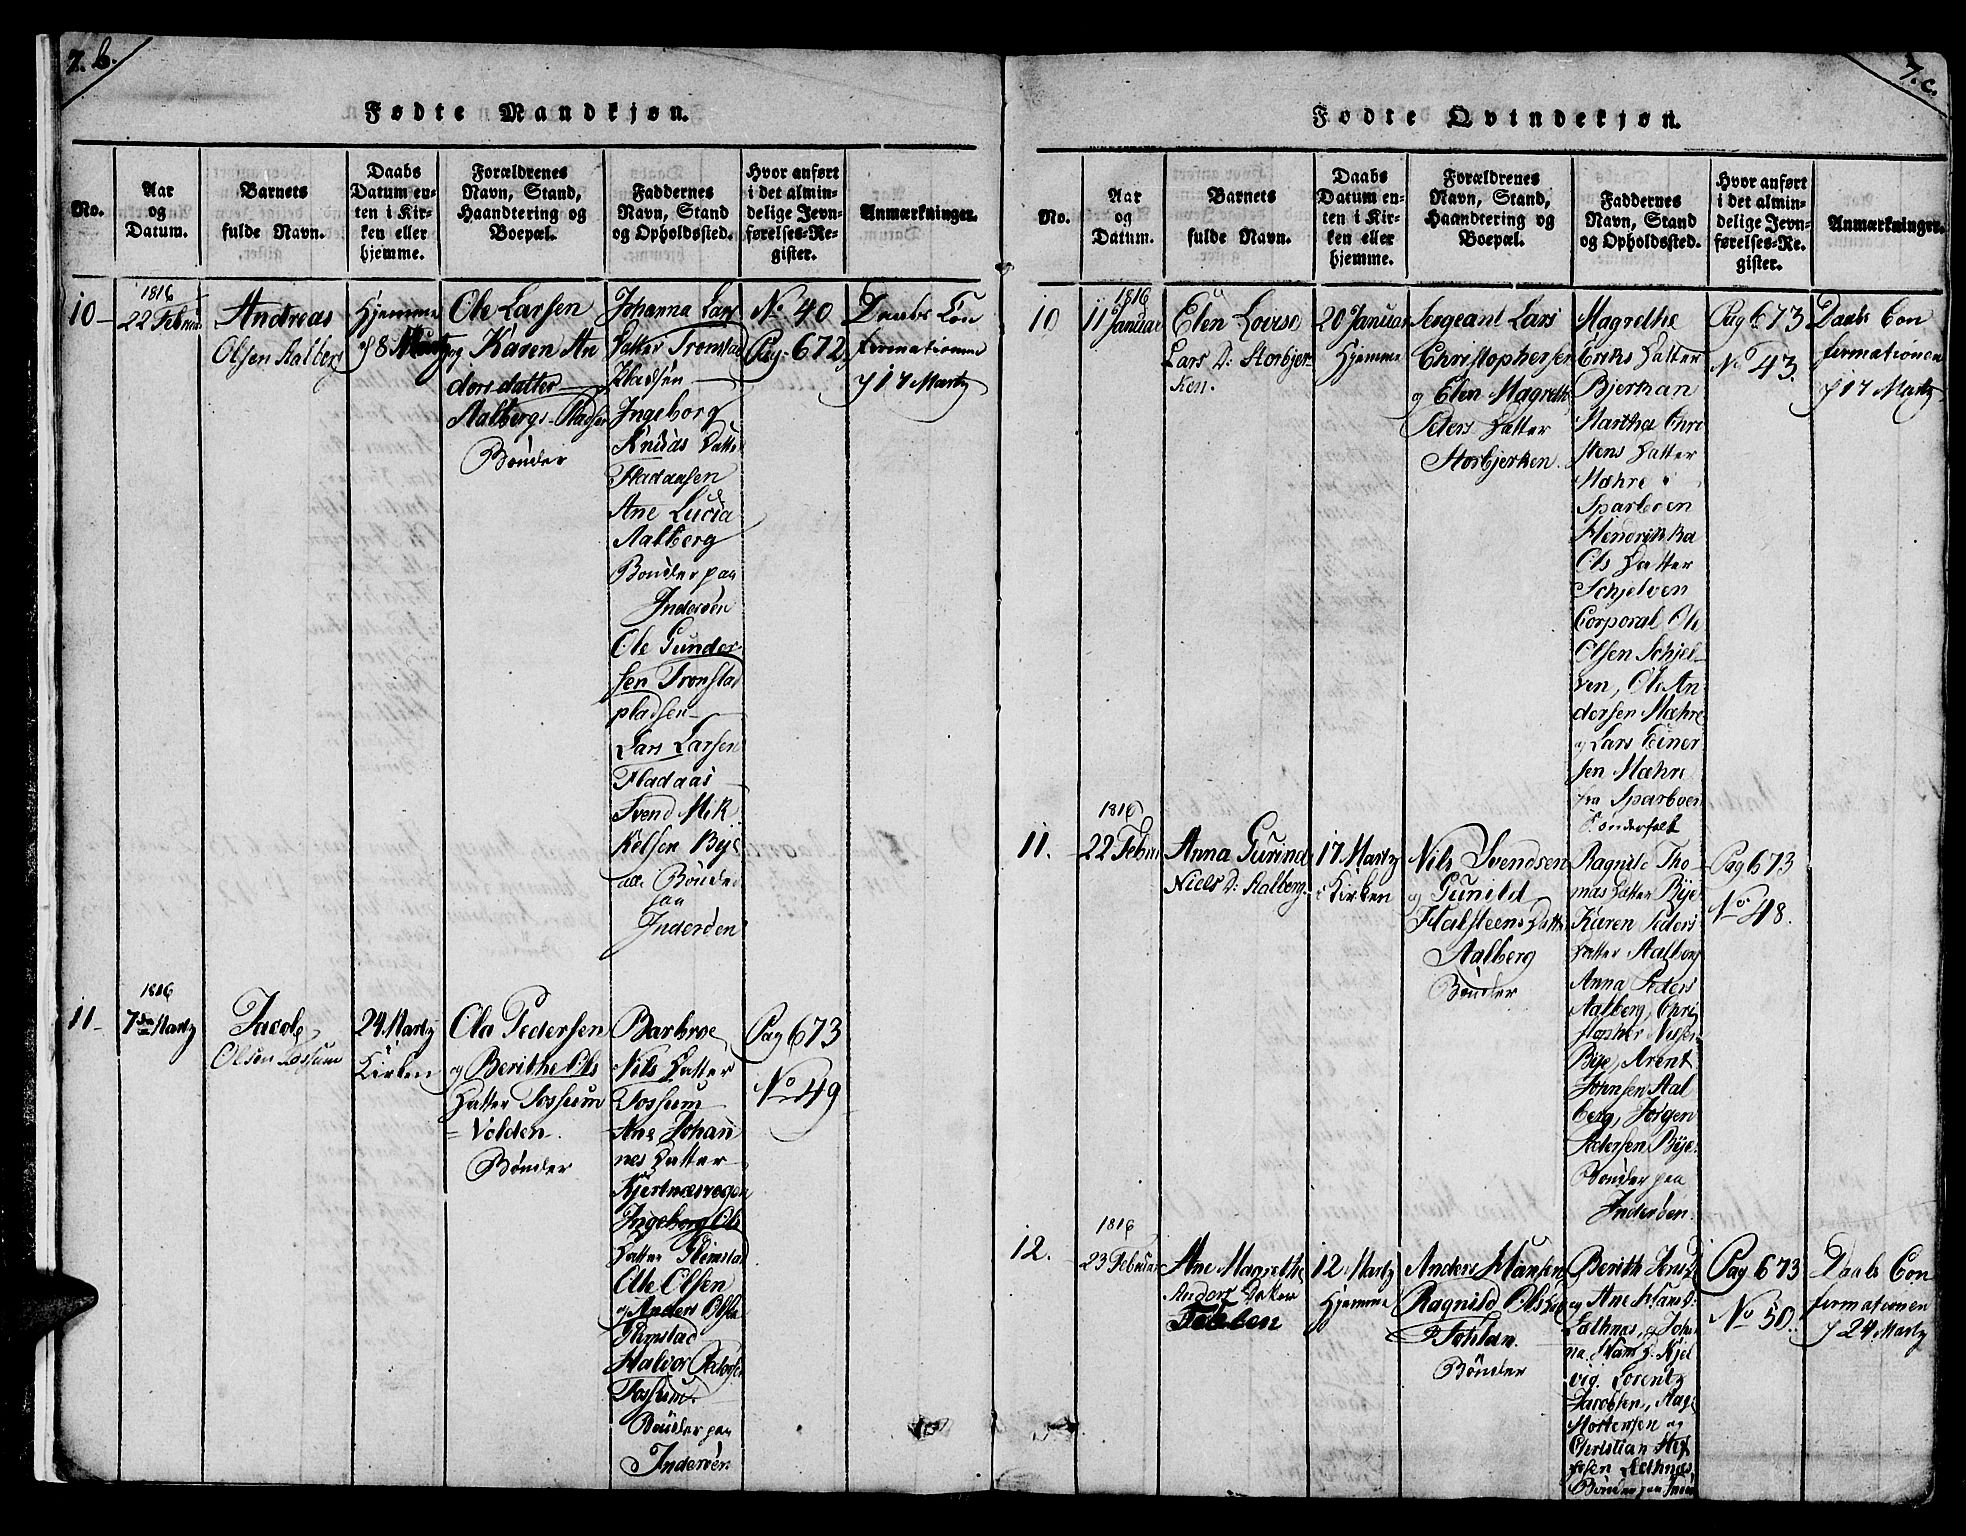 7. b.
Fødte Mandkjøn.
No.
Aar
og
Datum.
Barnets
fulde Navn.
Daabs
Datum en-
ten i Kir-
ken eller
hjemme.
Forældrenes
Navn, Stand,
Haandtering og
Boepæl.
Faddernes
Navn, Stand
og Opholdssted.
Hvor anført
i det almin-
delige Jevn-
førelses-Re-
gister.
Anmærkninger.
10
1816
22 Februar
Andreas
Olsen Aalberg
Hjemme
d 8 Martz
Ole Larsen
og Karen An
dersdatter
Aalbergs-Pladsen
Bønder
Johanna Lars
Datter Tronstad
Pladsen
Ingeborg
Knuds Datter
Fladaasen
Ane Lucia
Aalberg
Bønder paa
Inderøen
Ole Gunder-
sen Tronstad
pladsen
Lars Larsen
Fladaas
Svend Mik
kelsen Bye
alle Bønder
paa
Inderøen
No 40
Pag. 672
Daabs Con
firmationen
d 17 Martz
11
1816
7de Martz
Jacob
Olsen Tossum
24 Martz
Kirken
Ola Pedersen
og Berithe Ols
Datter Tossum
= Volden.
Bønder
Barbroe
Nils Datter
Tossum
Ane Johan
nes Datter
Kjertnæsvegen
Ingeborg Ols
Datter Flemstad
Ole Olsen
og Anders Olsen
Flemstad
Halvor Pedersen
Tossum.
Bønder paa
Inderøen
Pag 673
No 49
7. c.
Fødte Qvindekjøn.
No.
Aar
og
Datum.
Barnets
fulde Navn.
Daabs
Datum en-
ten i Kir-
ken eller
hjemme.
Forældrenes
Navn, Stand,
Haandtering og
Boepæl.
Faddernes
Navn, Stand
og Opholdssted.
Hvor anført
i det almin-
delige Jevn-
førelses-Re-
gister.
Anmærkninger.
10
1816
11 Januar
Elen Lovise
Lars D: Storbjer
ken.
20 Januar
Hjemme
Sergeant Lars
Christophersen
og Elen Magrethe
Peters Datter
Storbjerken.
Magrethe
Eriks Datter
Bjerkan
Martha Chri
stens Datter
Mæhre i
Sparboen
Hendrikka
Ols Datter
Schjelven
Corporal Ole
Olsen Schjel-
ven, Ole An
dersen Mæhre
og Lars Einer
sen Mæhre
fra Sparboen
Bønderfolk
Pag 673
No 43.
Daabs Con
firmationen
d 17 Martz
11.
1816
22 Febru
Anna Gurina
Niels D: Aalberg.
17 Martz
i Kirken
Nils Svendsen
og Gunild
Halsteens Datter
Aalberg
Bønder
Ragnile Tho
mas Datter Bye
Karen Peders
Datter Aalberg
Anna Peders
Aalberg, Chri
stopher Nilsen
Bye, Arent
Johnsen Aal
berg, Jørgen
Pedersen Bye
Bønder paa
Inderøen.
Pag 673
No 48.
12.
1816
23 Februar
Ane Magrethe
Anders Datter
12 Martz
Hjemme
Anders Hansen
Ragnild Ols D
Bønder
Berith Jens D
og Ane Hans D:
og Joha
na Hans D. Kjel
vig. Lorentz
Jacobsen, Aage
Mortensen og
Christian
Bønder paa Inderø
Pag 673
No 50.
Daabs Con
firmationen
d 24 Martz